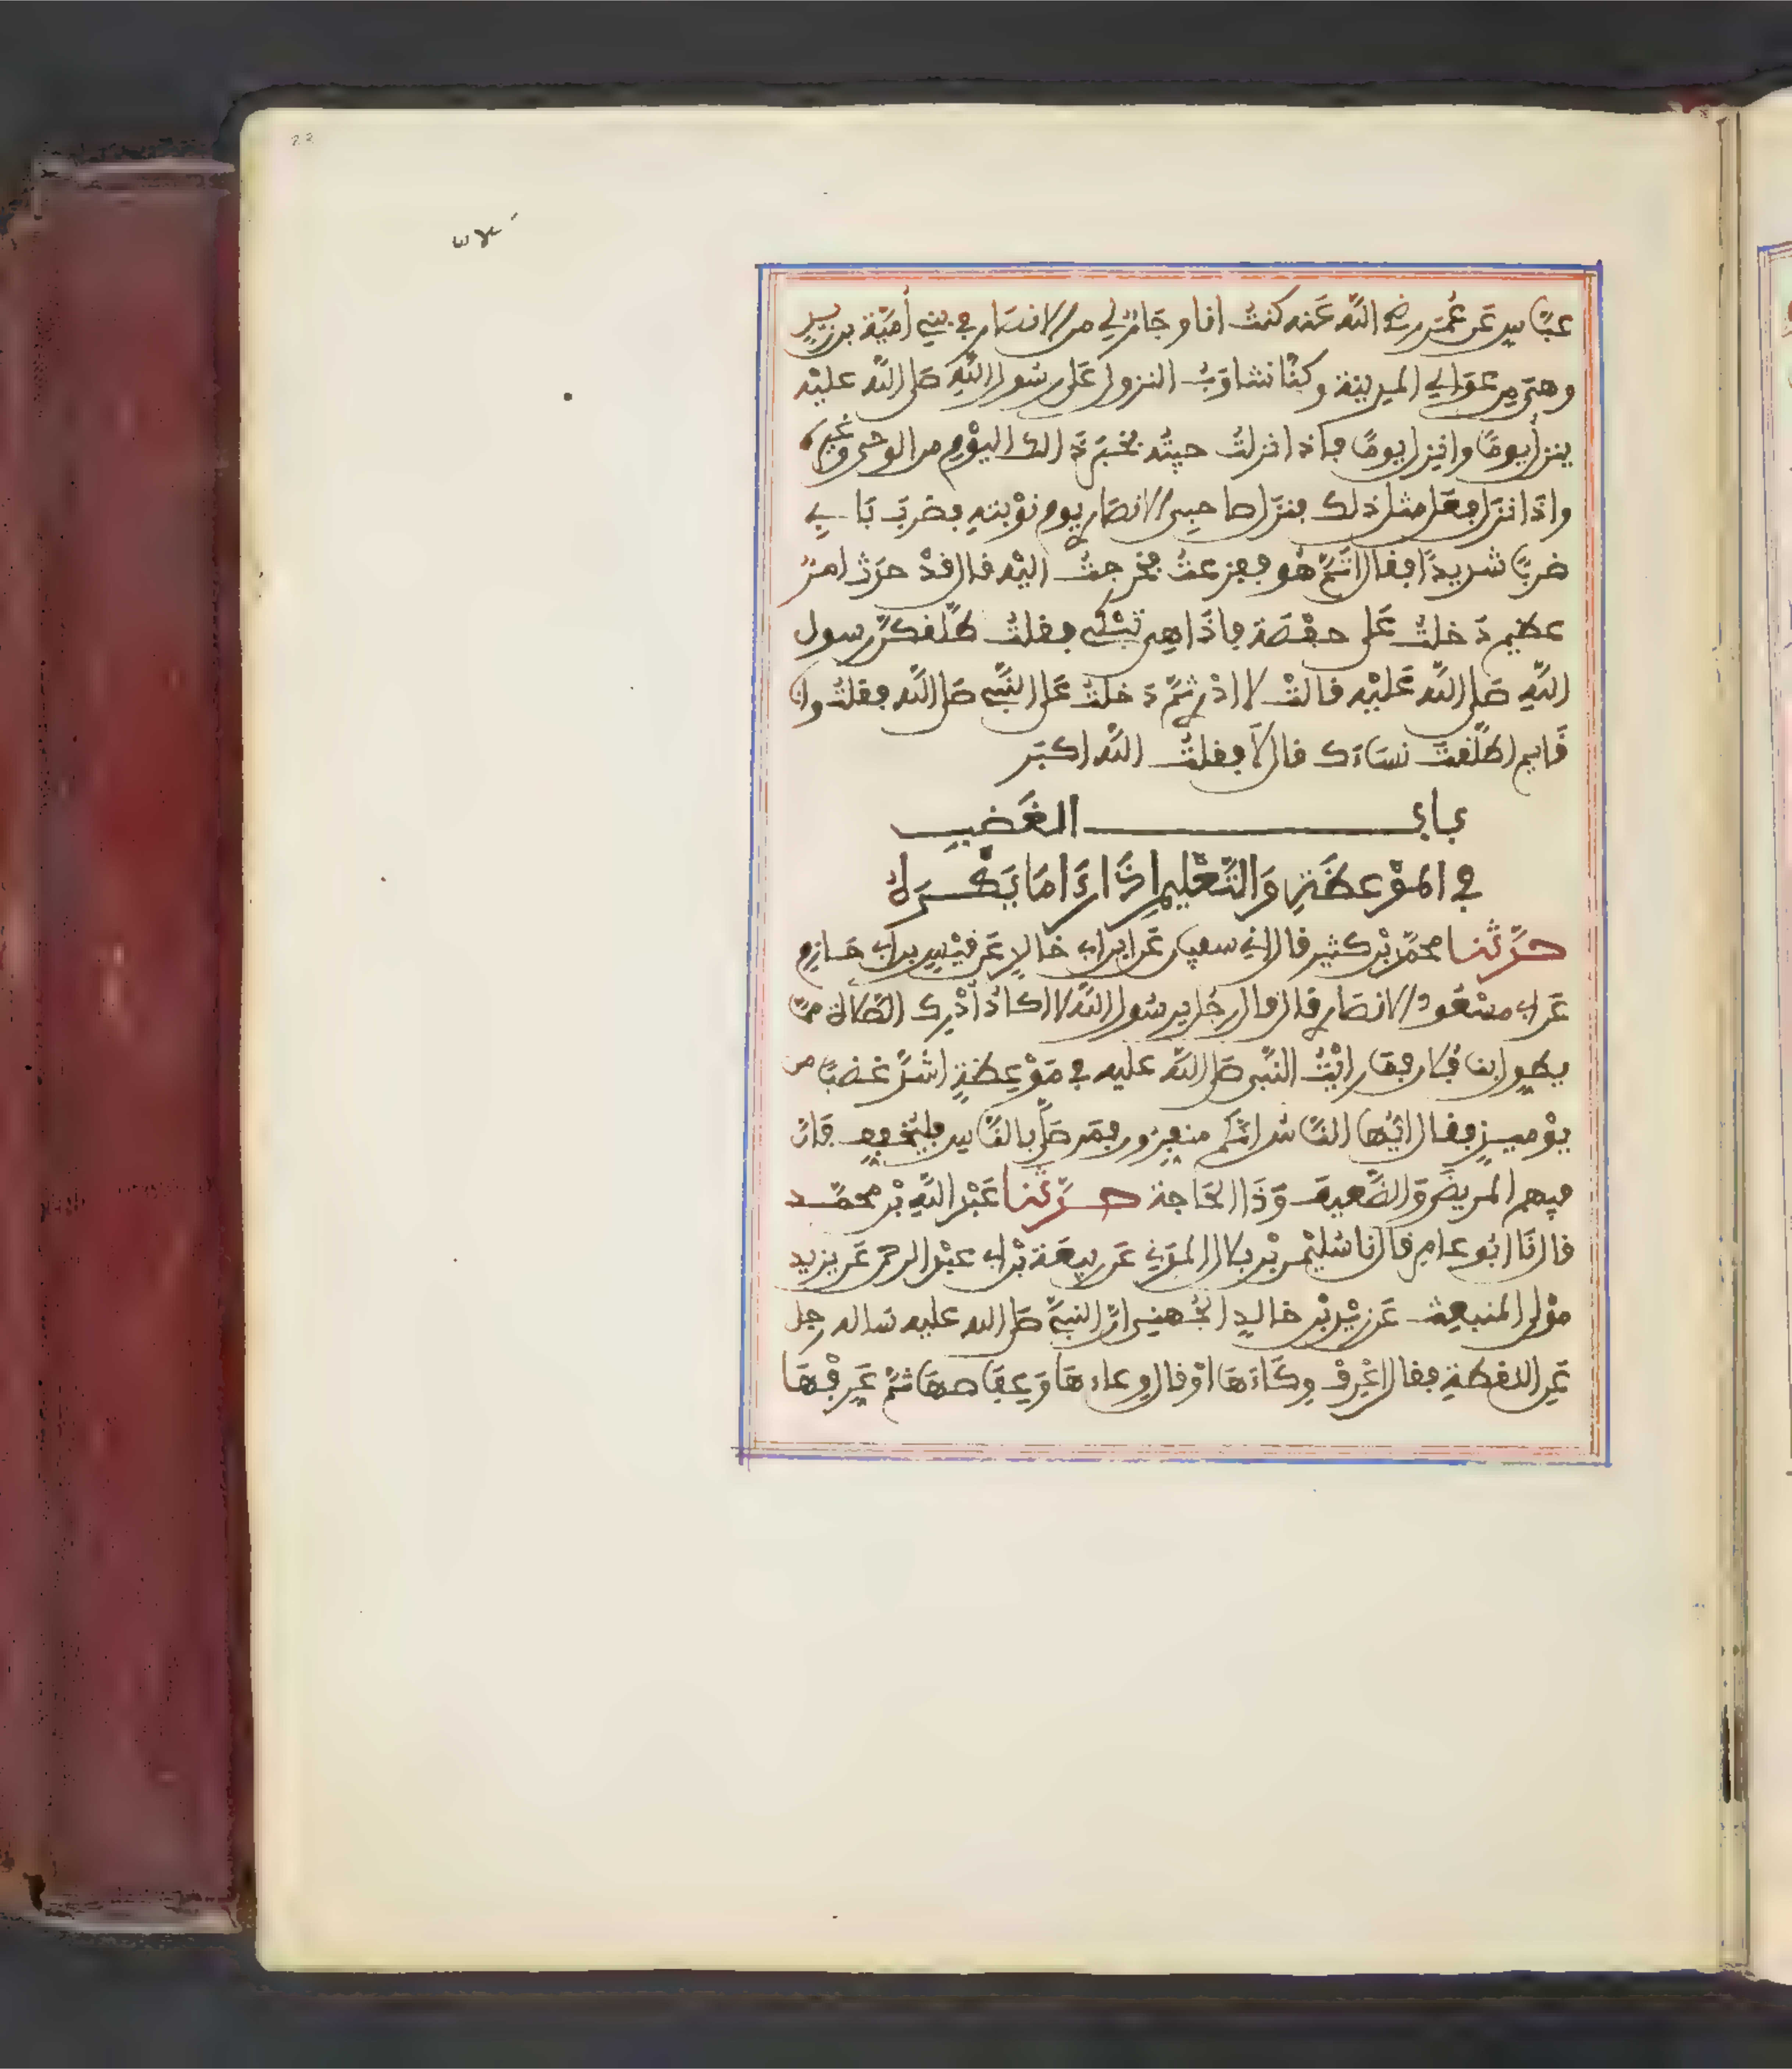 عبّاسٍ عَن عُمَرَ رضي اللّه عَنه كنتُ انا وجَارٌ لي من الانصَار في بني أُميّة بن زيدٍ
وهيَ مِن عَوَالي المدينة وكنّا نتناوَبُ النزول عَلى رسُول اللّهِ صَلى اللّه عليْه
ينزل يومًا وانزِل يومًا فاذا نزلتُ جيتُه بخبَرِ ذَالك اليوْمِ من الوحى وغيره
واذَا نزَل فعَل مثل ذلك فنزَل صاحبِى الانصَاري يوم نوْبتهِ فضَربَ بَابي
ضربًا شديدًا فقال اثَمَّ هُو ففزعتُ فخرجتُ اليْه فال قدْ حدَث امرٌ
عظيم دَخلتُ عَلى حفْصَة فاذَا هِى تبْكي فقلتُ طلّفكنَّ رسول
اللّهِ صَلى اللّه عَليْه قالتْ لا ادْري ثمَّ دَخلتُ عَلى النّبي صَلى اللّه فقلتُ وانا
قَايم اطلّفتَ نسَاءَك قال لَا فقلتُ اللّه اكبَر
باب الغَضبِ
في الموْعظَةِ وَالتّعْليمِ اذَا رَءَا مَا يَكْرَه
حدّثنا محمّد بْن كثيرٍ قال اني سفين عَن ابن ابي خالدٍ عَن قيْسِ بن ابي حَازمٍ
عَن ابي مسْعُودٍ الانصَاري قال قال رجُل يرسُول اللّه لا اكادُ أدْرِك الصّلاة ممّا
يطول بنا فُلان فمَا رايْتُ النّبى صَلى اللّه عليه في مَوْعِظةٍ اشدّ غضبًا من
يوْميذٍ فقال ايُّها النّاسُ انّكم منفِرون فمَن صَلّى بالنّاسِ فليُخفِف فانّ
فيهم المريضَ وَالضّعيفَ وَذَا الحَاجة حدّثنا عَبْد اللّهِ بْن محمّد
قال نَا ابُو عامرٍ قال نا سُليْمن بْن بلال المدَني عَن ربيعَة بْن ابي عبْد الرحمن عَن يزيد
موْلى المنبعِث عَن زيْد بْن خالدٍ الجُهنىِ انّ النبىَّ صَلى الله عليه سَاله رجل
عَن اللقطةِ فقال اعْرفْ وِكَاءَهَا اوْ قال وعاءهَا وَعِفَاصهَا ثمَّ عَرِّفْهَا